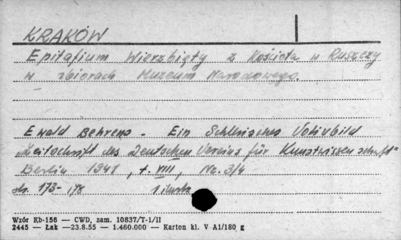 KRAKÓW
Epitafium Wierzbięty z Kościoła w Ruszczy
w zbiorach Muzeum Narodowego.
Ewald Behrens - Ein Schlesisches Votivbild
"Zeitschrift des Deutschen Vereins für Kunstwissenschaft"
Berlin 1941, t. VIII, Nr. 3/4
str. 173-178 1 ilustr.
Wzór Kb-156 — CWD, zam. 10837/T-1/II
2445 — Łak —23.8.55 — 1.460.000 — Karton kl. V A1/180 g